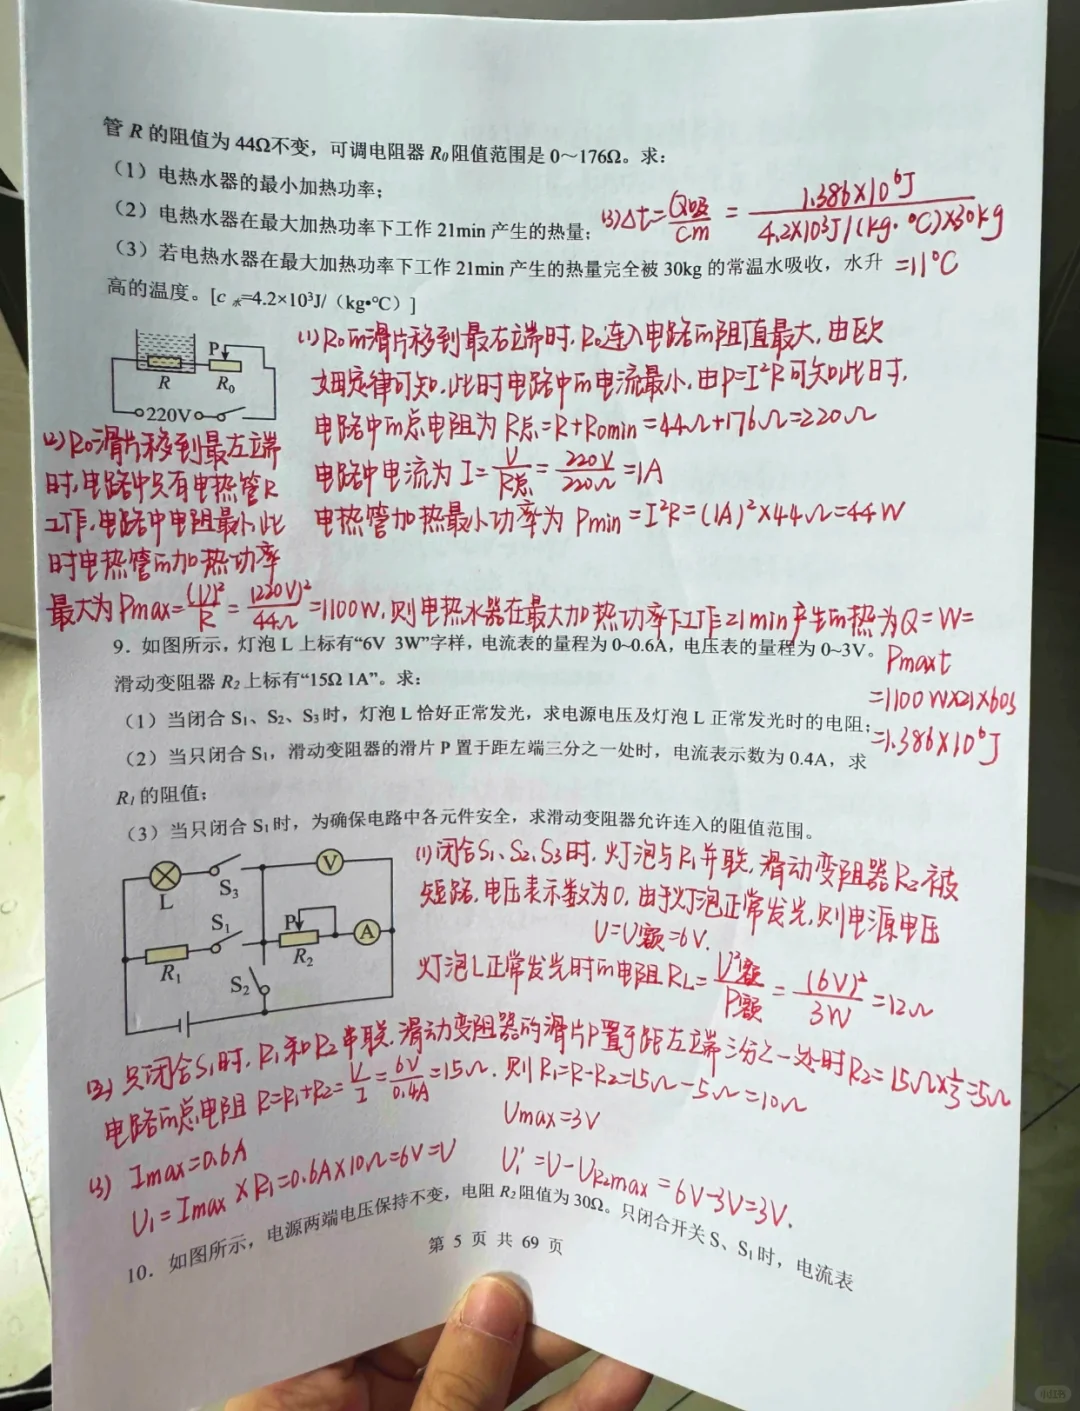 管 R 的阻值为 44Ω不变，可调电阻器 R₀ 阻值范围是 0～176Ω。求：
（1）电热水器的最小加热功率；
（2）电热水器在最大加热功率下工作 21min 产生的热量；
（3）若电热水器在最大加热功率下工作 21min 产生的热量完全被 30kg 的常温水吸收，水升
高的温度。[c 水=4.2×10³J/（kg•℃）]
(3)Δt=Q吸/cm = 1.386×10⁶J/4.2×10³J/(kg·℃)×30kg
=11℃
P
R
R₀
220V
(1)R₀的滑片移到最右端时，R₀连入电路的阻值最大，由欧
姆定律可知，此时电路中的电流最小，由P=I²R可知此时，
电路中的总电阻为 R总=R+R₀min=44Ω+176Ω=220Ω
电路中电流为 I=U/R总=220V/220Ω=1A
电热管加热最小功率为 Pmin=I²R=(1A)²×44Ω=44W
(2)R₀滑片移到最左端
时，电路中只有电热管R
工作，电路中电阻最小，此
时电热管的加热功率
最大为Pmax=(U)²/R=(220V)²/44Ω=1100W，则电热水器在最大加热功率下工作21min产生的热为Q=W=
Pmaxt
=1100W×21×60s
=1.386×10⁶J
9．如图所示，灯泡 L 上标有“6V 3W”字样，电流表的量程为 0~0.6A，电压表的量程为 0~3V。
滑动变阻器 R₂ 上标有“15Ω 1A”。求：
（1）当闭合 S₁、S₂、S₃ 时，灯泡 L 恰好正常发光，求电源电压及灯泡 L 正常发光时的电阻；
（2）当只闭合 S₁，滑动变阻器的滑片 P 置于距左端三分之一处时，电流表示数为 0.4A，求
R₁ 的阻值；
（3）当只闭合 S₁ 时，为确保电路中各元件安全，求滑动变阻器允许连入的阻值范围。
L
S₃
V
S₁
P
A
R₁
R₂
S₂
(1)闭合S₁、S₂、S₃时，灯泡与R₁并联，滑动变阻器R₂被
短路，电压表示数为0，由于灯泡正常发光，则电源电压
U=U额=6V.
灯泡L正常发光时的电阻RL=U²额/P额=(6V)²/3W=12Ω
(2) 只闭合S₁时，R₁和R₂串联，滑动变阻器的滑片P置于距左端三分之一处时R₂=15Ω×1/3=5Ω
电路的总电阻 R=R₁+R₂=U/I=6V/0.4A=15Ω，则R₁=R-R₂=15Ω-5Ω=10Ω
(3) Imax=0.6A
Umax=3V
U₁=Imax×R₁=0.6A×10Ω=6V=U
U₁'=U-UR₂max=6V-3V=3V.
10．如图所示，电源两端电压保持不变，电阻 R₂ 阻值为 30Ω。只闭合开关 S、S₁ 时，电流表
第 5 页 共 69 页
小红书